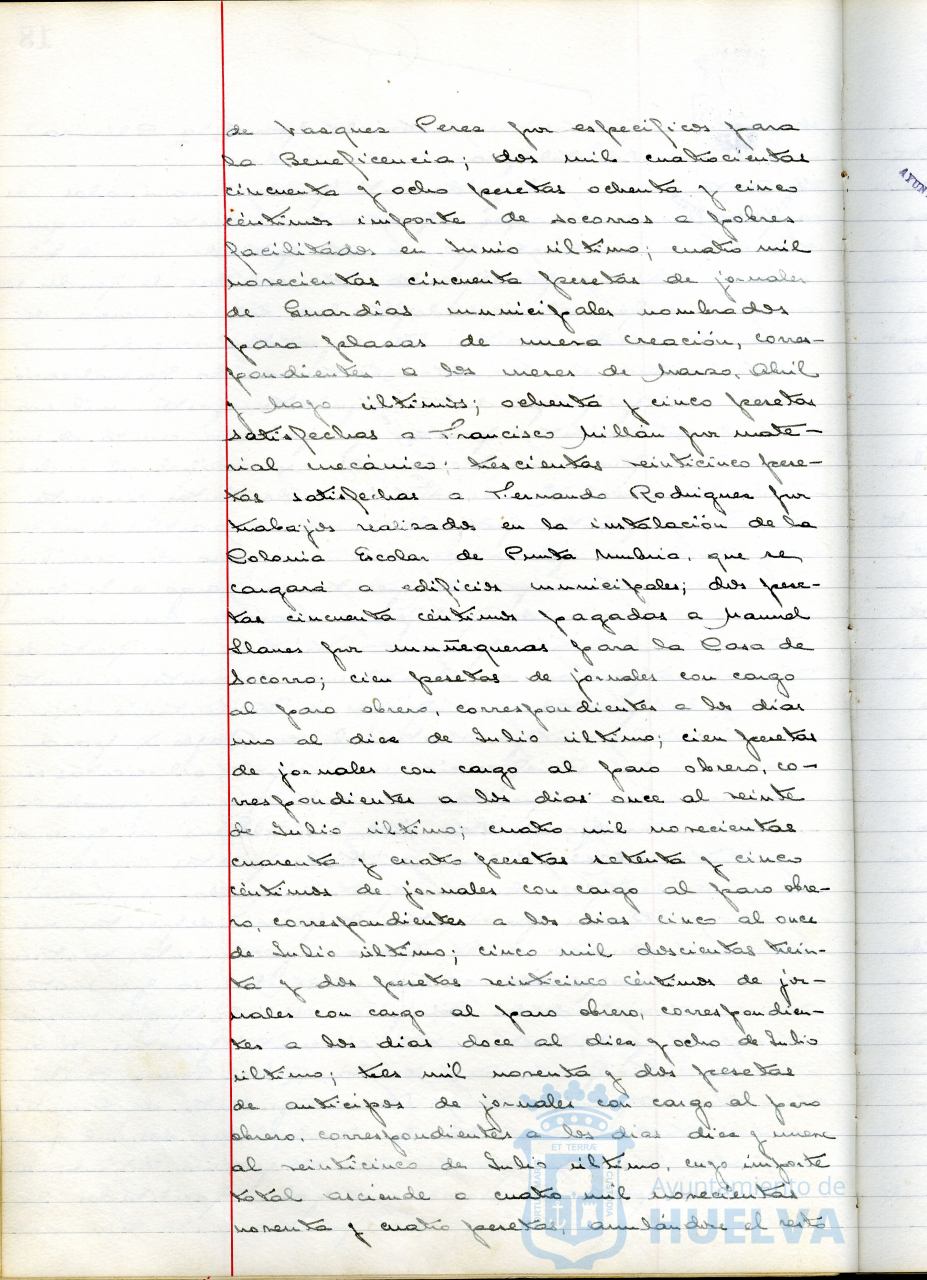 de Vasques Peres por específicos para
la Beneficencia; dos mil cuatrocientas
cincuenta y ocho pesetas ochenta y cinco
céntimos importe de socorros a pobres
facilitados en Junio último; cuatro mil
novecientas cincuenta pesetas de jornales
de Guardias municipales nombrados
para plazas de nueva creación, corres-
pondientes a los meses de Marzo, Abril
y Mayo últimos; ochenta y cinco pesetas
satisfechas a Francisco Millán por mate-
rial mecánico; trescientas veinticinco pese-
tas satisfechas a Fernando Rodrigues por
trabajos realizados en la instalación de la
Colonia Escolar de Punta Umbria, que se
cargará a edificios municipales; dos pese-
tas cincuenta céntimos pagadas a Manuel
Llanes por muñequeras para la Casa de
Socorro; cien pesetas de jornales con cargo
al paro obrero, correspondientes a los días
uno al diez de Julio último; cien pesetas
de jornales con cargo al paro obrero, co-
rrespondientes a los días once al veinte
de Julio último; cuatro mil novecientas
cuarenta y cuatro pesetas setenta y cinco
céntimos de jornales con cargo al paro obre-
ro, correspondientes a los días cinco al once
de Julio último; cinco mil doscientas trein-
ta y dos pesetas veinticinco céntimos de jor-
nales con cargo al paro obrero, correspondien-
tes a los días doce al diez y ocho de Julio
último; tres mil noventa y dos pesetas
de anticipos de jornales con cargo al paro
obrero, correspondientes a los días diez y nueve
al veinticinco de Julio último, cuyo importe
total asciende a cuatro mil novecientas
noventa y cuatro pesetas, anulándose el resto
Ayuntamiento de
HUELVA